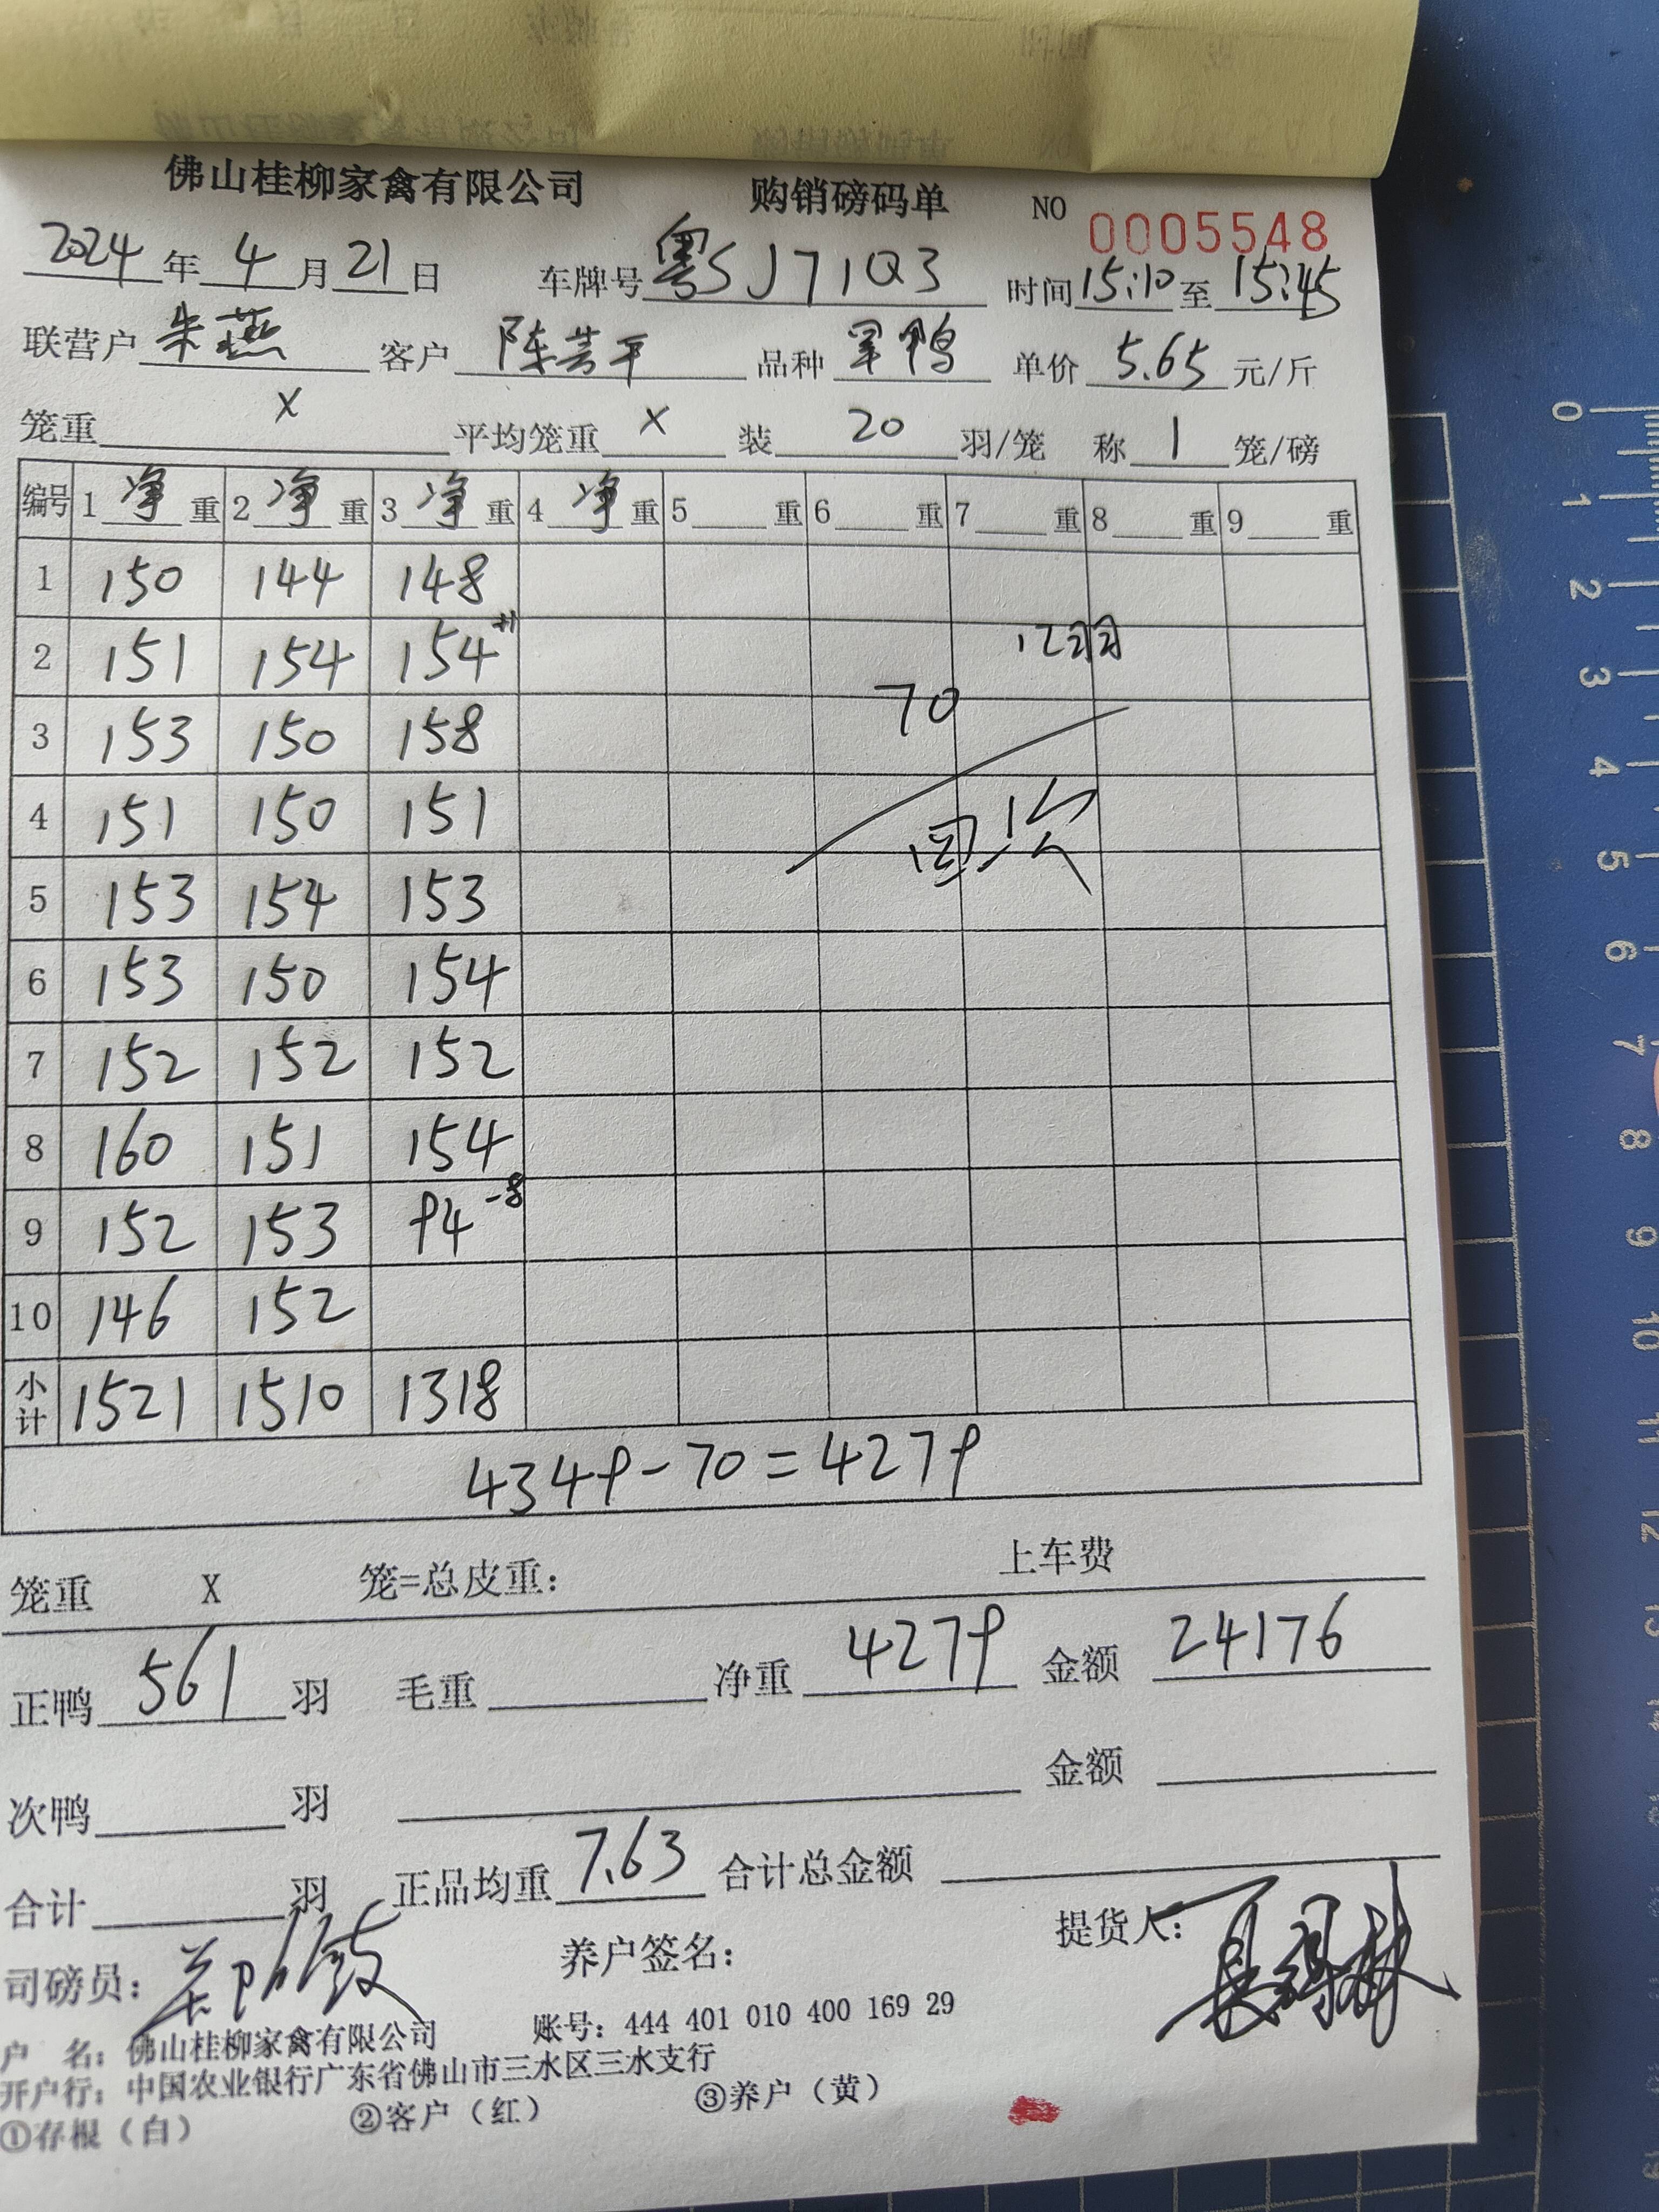 佛山桂柳家禽有限公司 购销磅码单 NO 0005548
2024年4月21日 车牌号粤SJ71Q3 时间15:10至15:45
联营户朱燕 客户陈芸平 品种 鸭 单价5.65元/斤
笼重X 平均笼重X 装20羽/笼 称1笼/磅
编号 1净重 2净重 3净重 4净重 5重 6重 7重 8重 9重
1 150 144 148
2 151 154 154+1 12羽
3 153 150 158 70
4 151 150 151 回次
5 153 154 153
6 153 150 154
7 152 152 152
8 160 151 154
9 152 153 94-8
10 146 152
小计 1521 1510 1318
4349-70=4279
笼重 X 笼=总皮重: 上车费
正鸭561羽 毛重 净重4279 金额24176
次鸭 羽 金额
合计 羽 正品均重7.63 合计总金额
司磅员: 养户签名: 提货人:
户 名: 佛山桂柳家禽有限公司 账号: 444 401 010 400 169 29
开户行: 中国农业银行广东省佛山市三水区三水支行
①存根（白） ②客户（红） ③养户（黄）
0
1
2
3
4
5
6
7
8
9
10
11
12
13